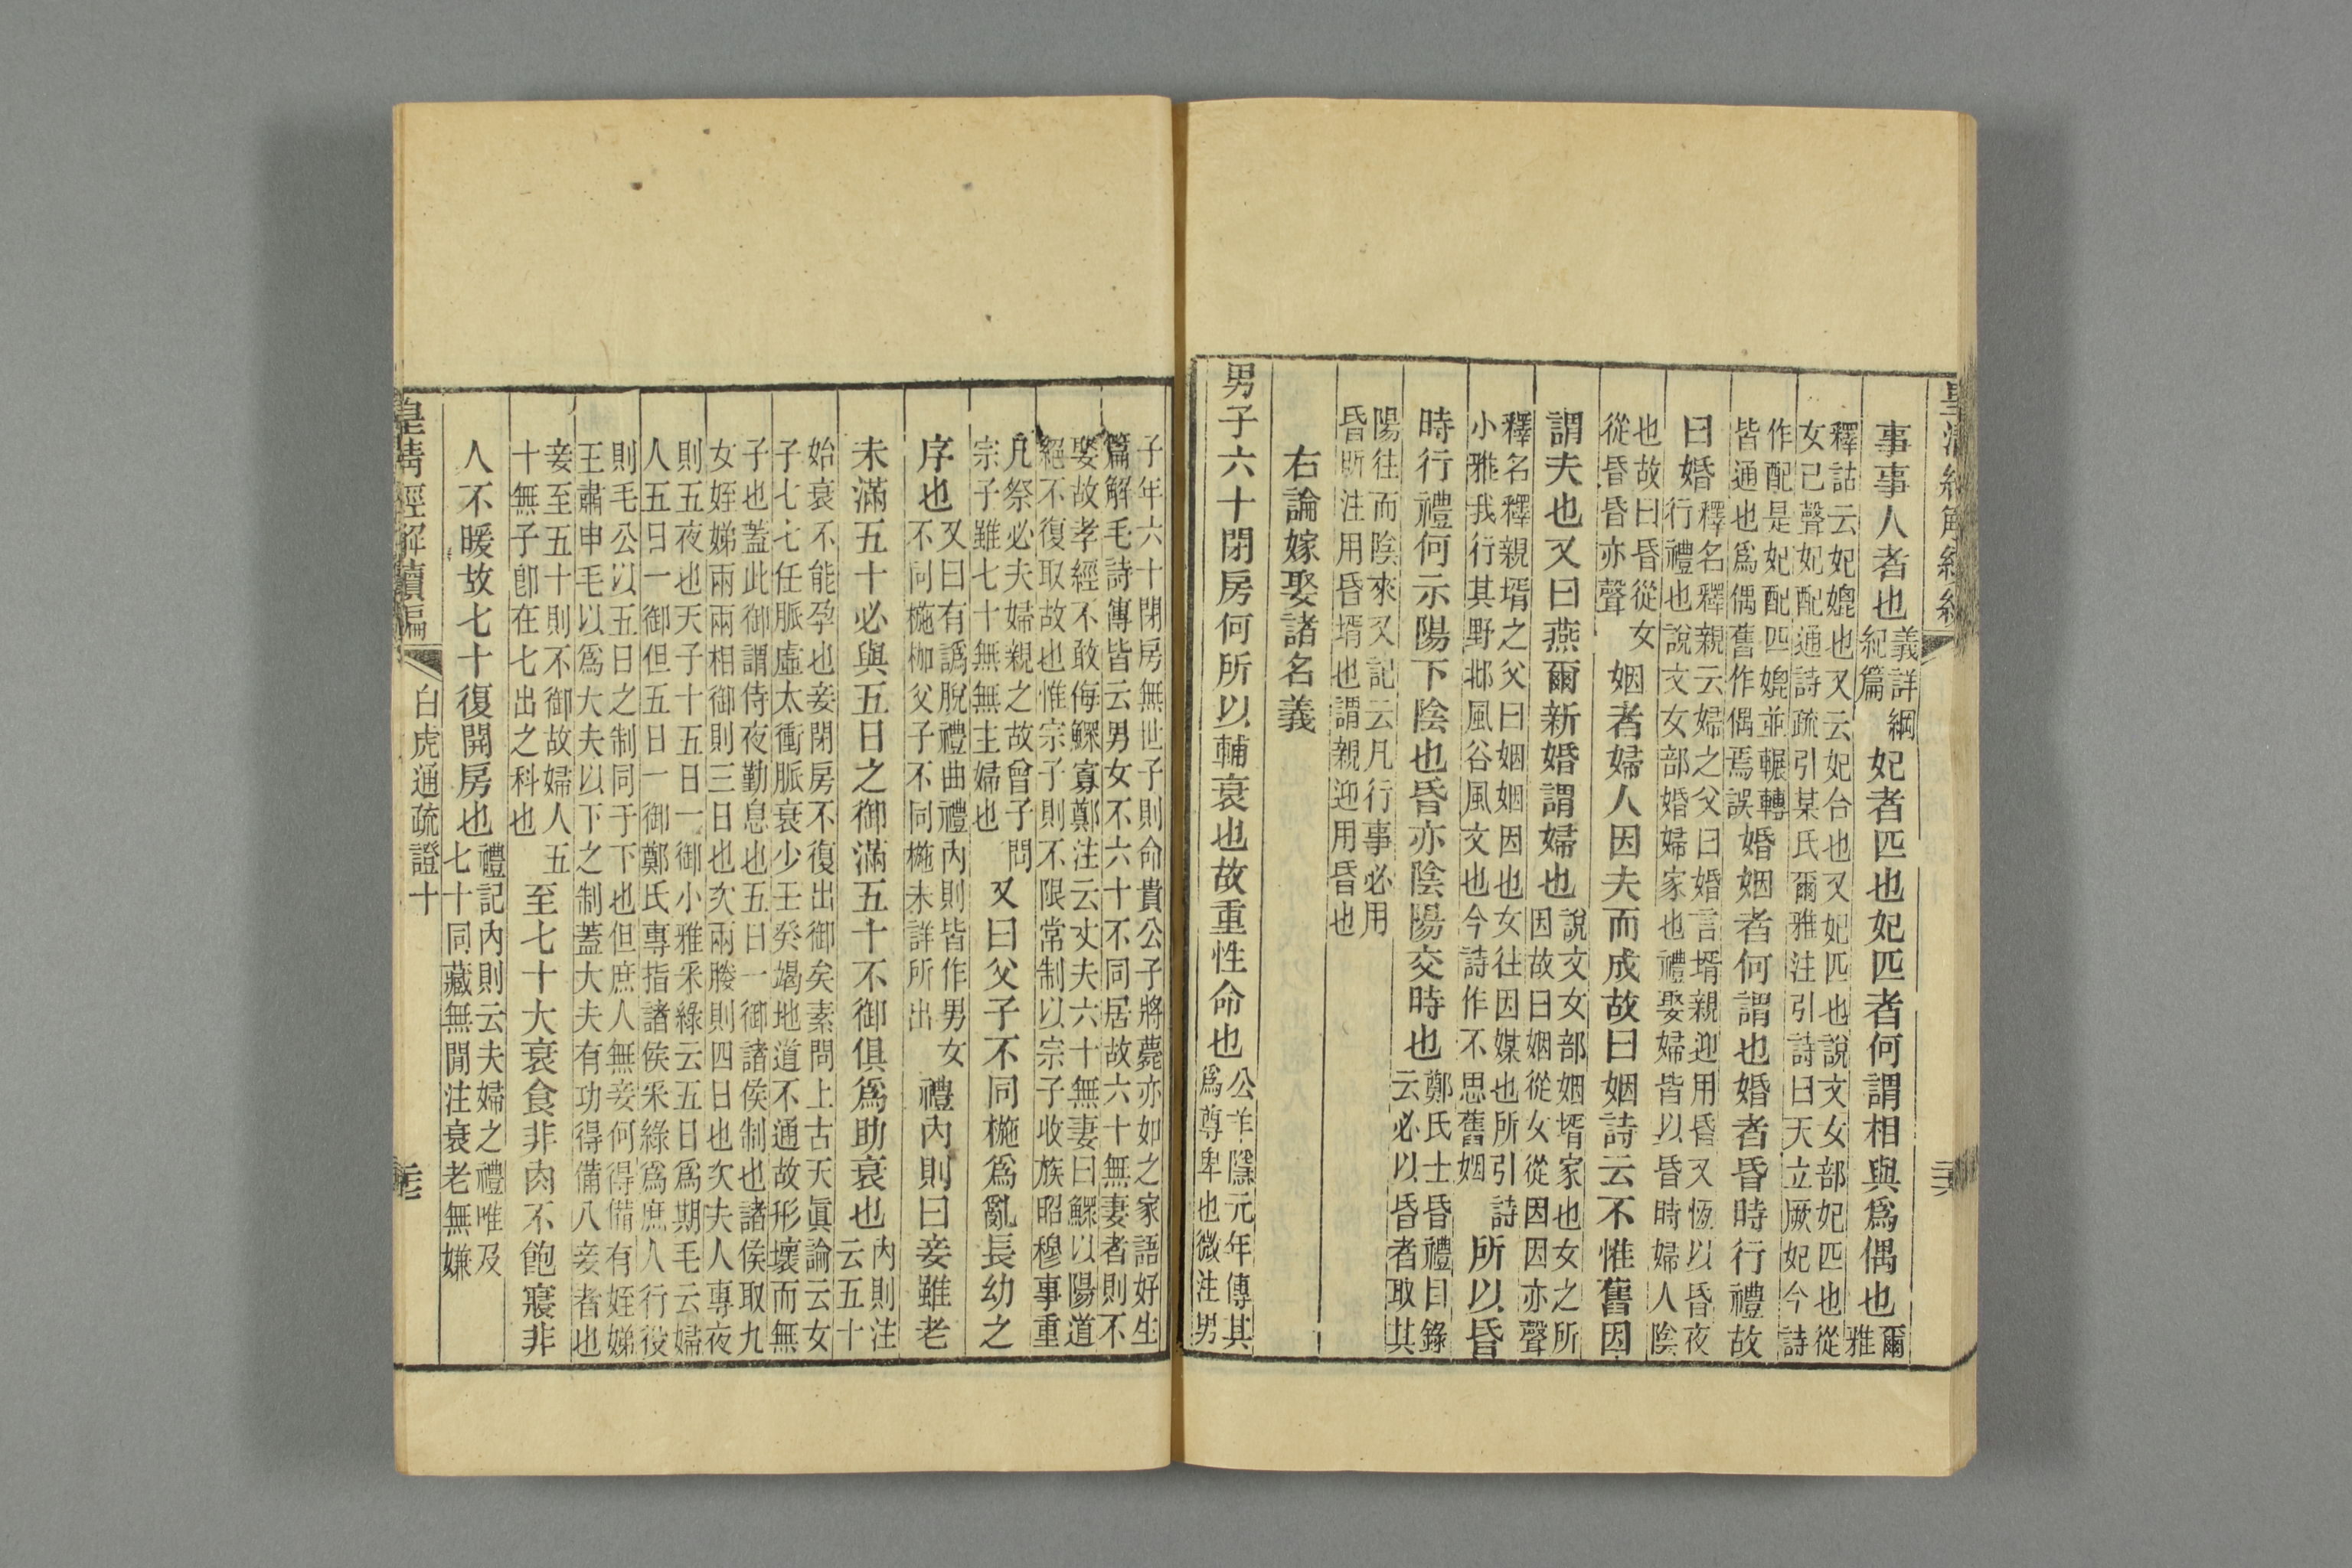 事事人者也義詳綱紀篇妃者匹也妃匹者何謂相與爲偶也爾雅
釋詁云妃媲也又云妃合也又妃匹也說文女部妃匹也從
女己聲妃配通詩疏引某氏爾雅注引詩曰天立厥妃今詩
作配是妃配匹媲並輾轉皆通也爲偶舊作偶焉誤婚姻者何謂也婚者昏時行禮故
曰婚釋名釋親云婦之父曰婚言壻親迎用昏又恆以昏夜行禮也說文女部婚婦家也禮娶婦皆以昏時婦人陰
也故曰昏從女從昏昏亦聲姻者婦人因夫而成故曰姻詩云不惟舊因
謂夫也又曰燕爾新婚謂婦也說文女部姻壻家也女之所因故曰姻從女從因因亦聲
釋名釋親壻之父曰姻姻因也女往因媒也所引詩小雅我行其野邶風谷風文也今詩作不思舊姻所以昏
時行禮何示陽下陰也昏亦陰陽交時也鄭氏士昏禮目錄云必以昏者取其
陽往而陰來又記云凡行事必用
昏昕注用昏壻也謂親迎用昏也
右論嫁娶諸名義
男子六十閉房何所以輔衰也故重性命也公羊隱元年傳其爲尊卑也微注男
子年六十閉房無世子則命貴公子將薨亦如之家語好生
篇解毛詩傳皆云男女不六十不同居故六十無妻者則不
娶故孝經不敢侮鰥寡鄭注云丈夫六十無妻曰鰥以陽道
絕不復取故也惟宗子則不限常制以宗子收族昭穆事重
凡祭必夫婦親之故曾子問宗子雖七十無無主婦也又曰父子不同椸爲亂長幼之
序也又曰有譌脫禮曲禮內則皆作男女不同椸枷父子不同椸未詳所出禮內則曰妾雖老
未滿五十必與五日之御滿五十不御俱爲助衰也內則注云五十
始衰不能孕也妾閉房不復出御矣素問上古天眞論云女
子七七任脈虛太衝脈衰少壬癸竭地道不通故形壞而無
子也蓋此御謂侍夜勤息也五日一御諸侯制也諸侯取九
女姪娣兩兩相御則三日也次兩媵則四日也次夫人專夜
則五夜也天子十五日一御小雅采綠云五日爲期毛云婦
人五日一御但五日一御鄭氏專指諸侯采綠爲庶人行役
則毛公以五日之制同于下也但庶人無妾何得備有姪娣
王肅申毛以爲大夫以下之制蓋大夫有功得備八妾者也
妾至五十則不御故婦人五十無子卽在七出之科也至七十大衰食非肉不飽寢非
人不暖故七十復開房也禮記內則云夫婦之禮唯及七十同藏無閒注衰老無嫌
皇清經解續編 白虎通疏證十